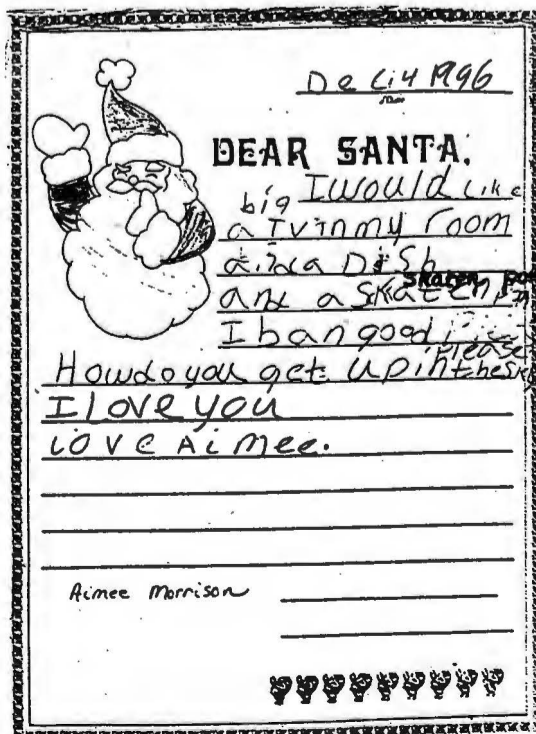 De c i 4 1996
DEAR SANTA,
I would like
big
a Tv in my room
and a Dish
and a skaten
I ban good
Please
How do you get up in the sky
I Love you
LOVE Aimee.
Aimee Morrison